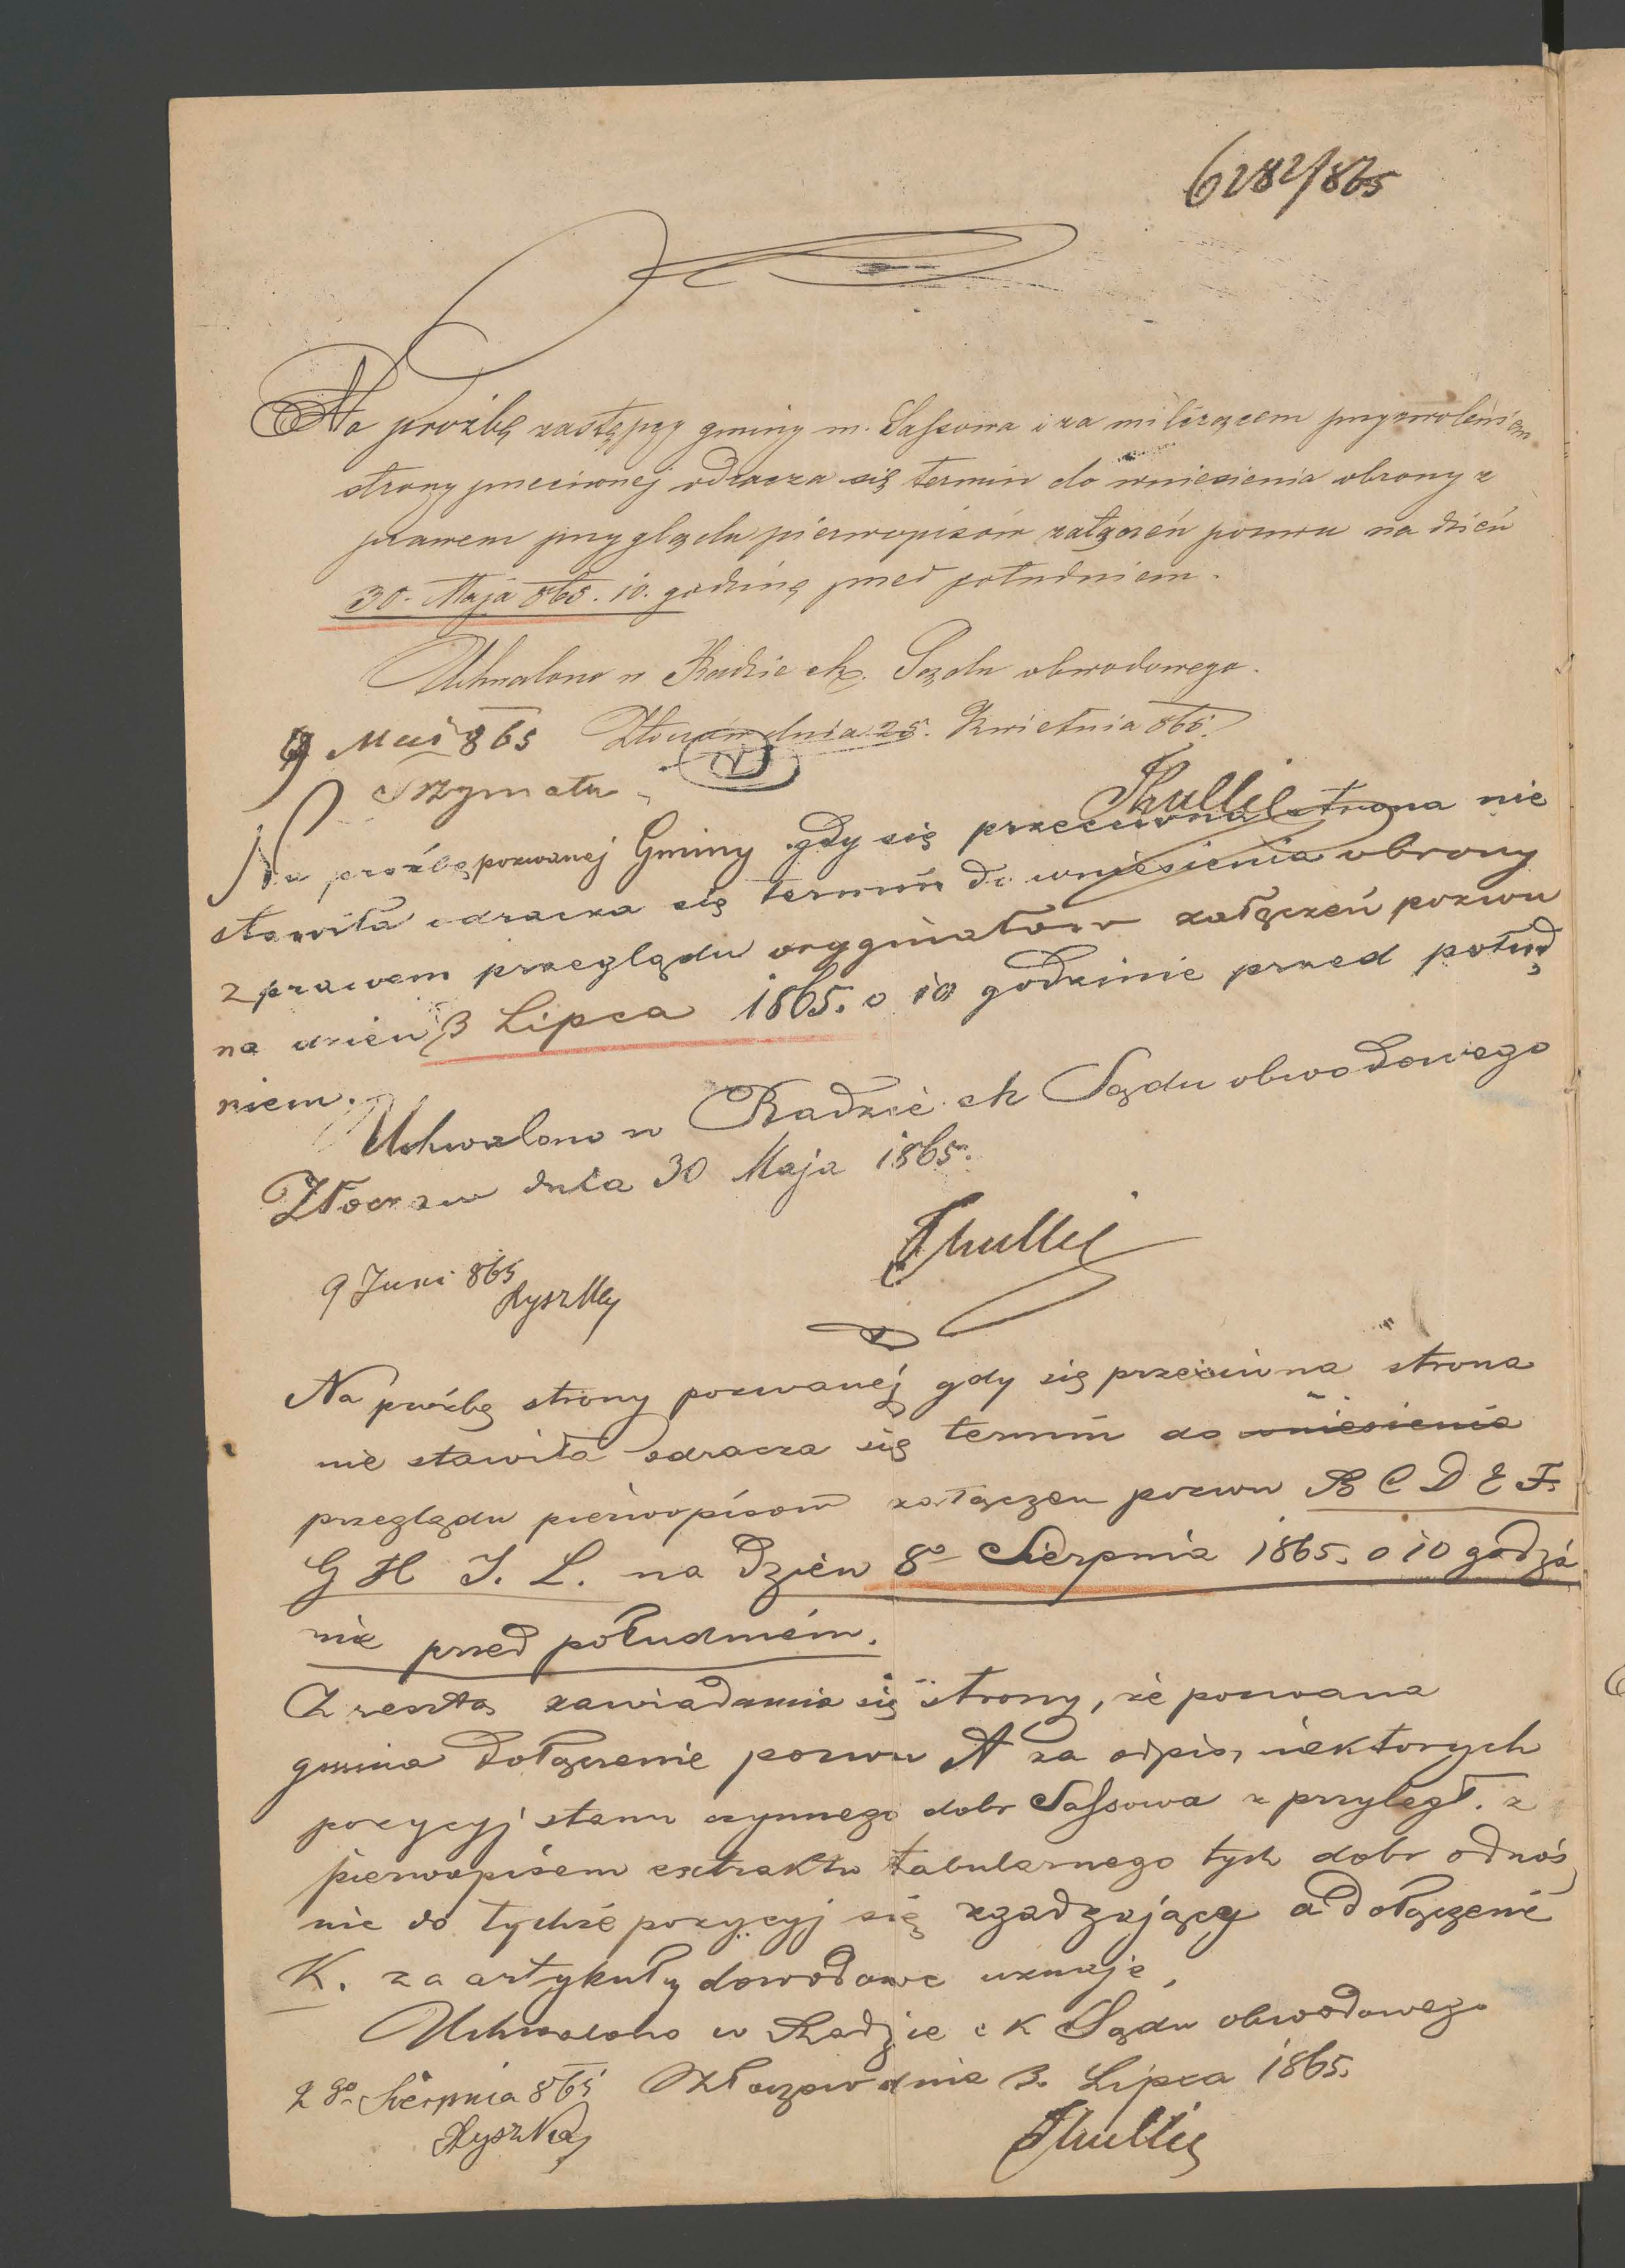 6282/865
Na prożbę zastępcy gminy m. Sassowa i za milczącem przyzwoleniem
strony przeciwnej odracza się termin do wniesienia obrony z
prawem przyglądu pierwopisów załączeń pozwu na dzień
30. Maja 865. 10. godzinę przed południem.
Uchwalono w Radzie ck. Sądu obwodowego.
Złoczów dnia 25. Kwietnia 865.
9 Mai 865
Thullie
Na prożbę pozwanej Gminy gdy się przeciwna strona nie
stawiła odracza się termin do wniesienia obrony
z prawem przeglądu oryginałów załączeń pozwu
na dzień 3 Lipca 1865. o 10 godzinie przed połud
niem.
Uchwalono w Radzie ck Sądu obwodowego
Złoczow dnia 30 Maja 1865.
Thullie
9 Juni 865
Na prośbę strony pozwanej gdy się przeciwna strona
nie stawiła odracza się termin do wniesienia
przeglądu pierwopisow załączen pozwu B C D E F.
G H I. L. na dzień 8o Sierpnia 1865. o 10 godzi
nie przed południem.
Z resztą zawiadamia się strony, że pozwana
gmina dołączenie pozwu A za odpis niektorych
pozycyj stanu czynnego dobr Sassowa z przyległ. z
pierwopisem extraktu tabularnego tych dobr odnoś
nie do tychże pozycyj się zgadzający a dołączenie
K. za artykuły dowodowe uznaje,
Uchwalono w Radzie c K Sądu obwodowego
Złoczow dnia 3. Lipca 1865.
2go Sierpnia 865
Thullie